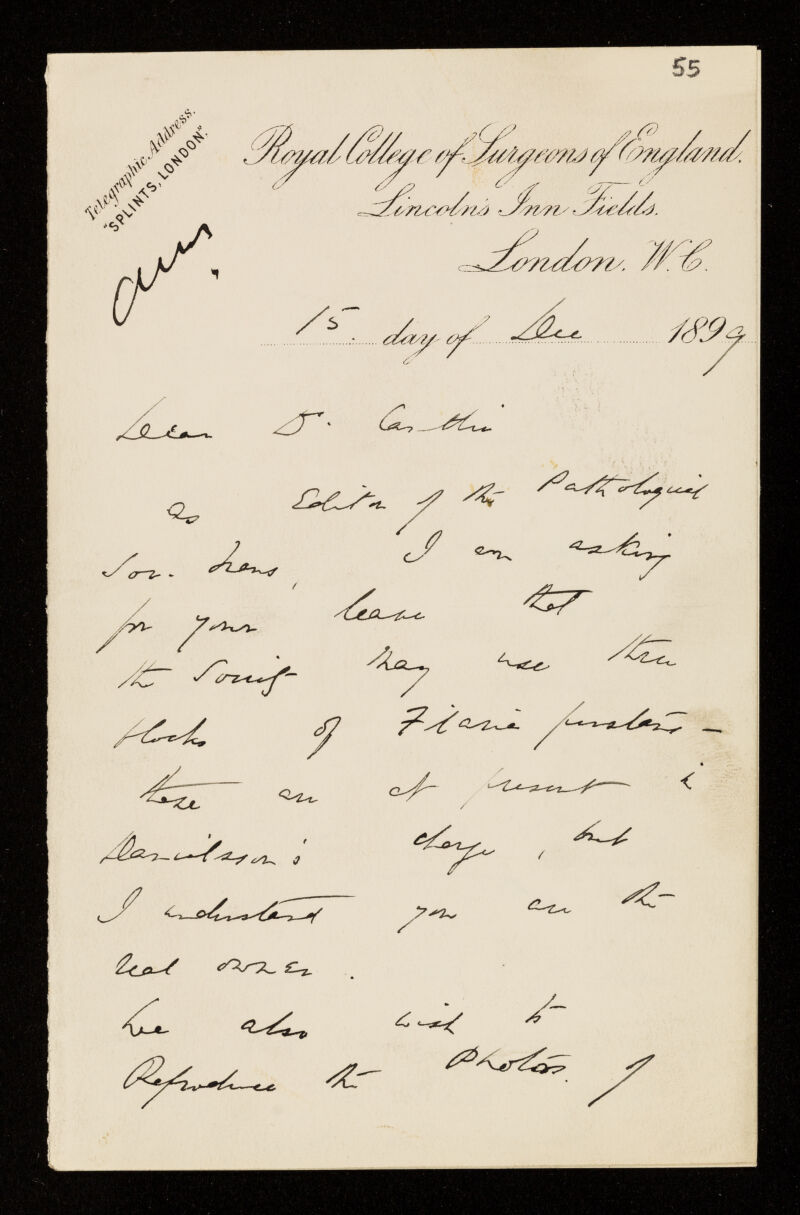 55
Telegraphic Address.
"SPLINTS, LONDON".
Royal College of Surgeons of England.
Lincoln's Inn Fields.
London. W.C.
Ans
15. day of Dec 1899
Dear Dr.
as Editor of the Pathological
Soc. Trans, I am asking
for your leave that
the Society may use three
blocks of Filaria perstans -
these are at present in
Danielsson's charge, but
I understand you are the
real owner.
We also wish to
Reproduce the Photos. of